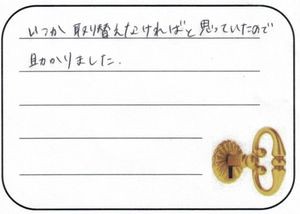 いつか取り替えなければと思っていたので
助かりました.